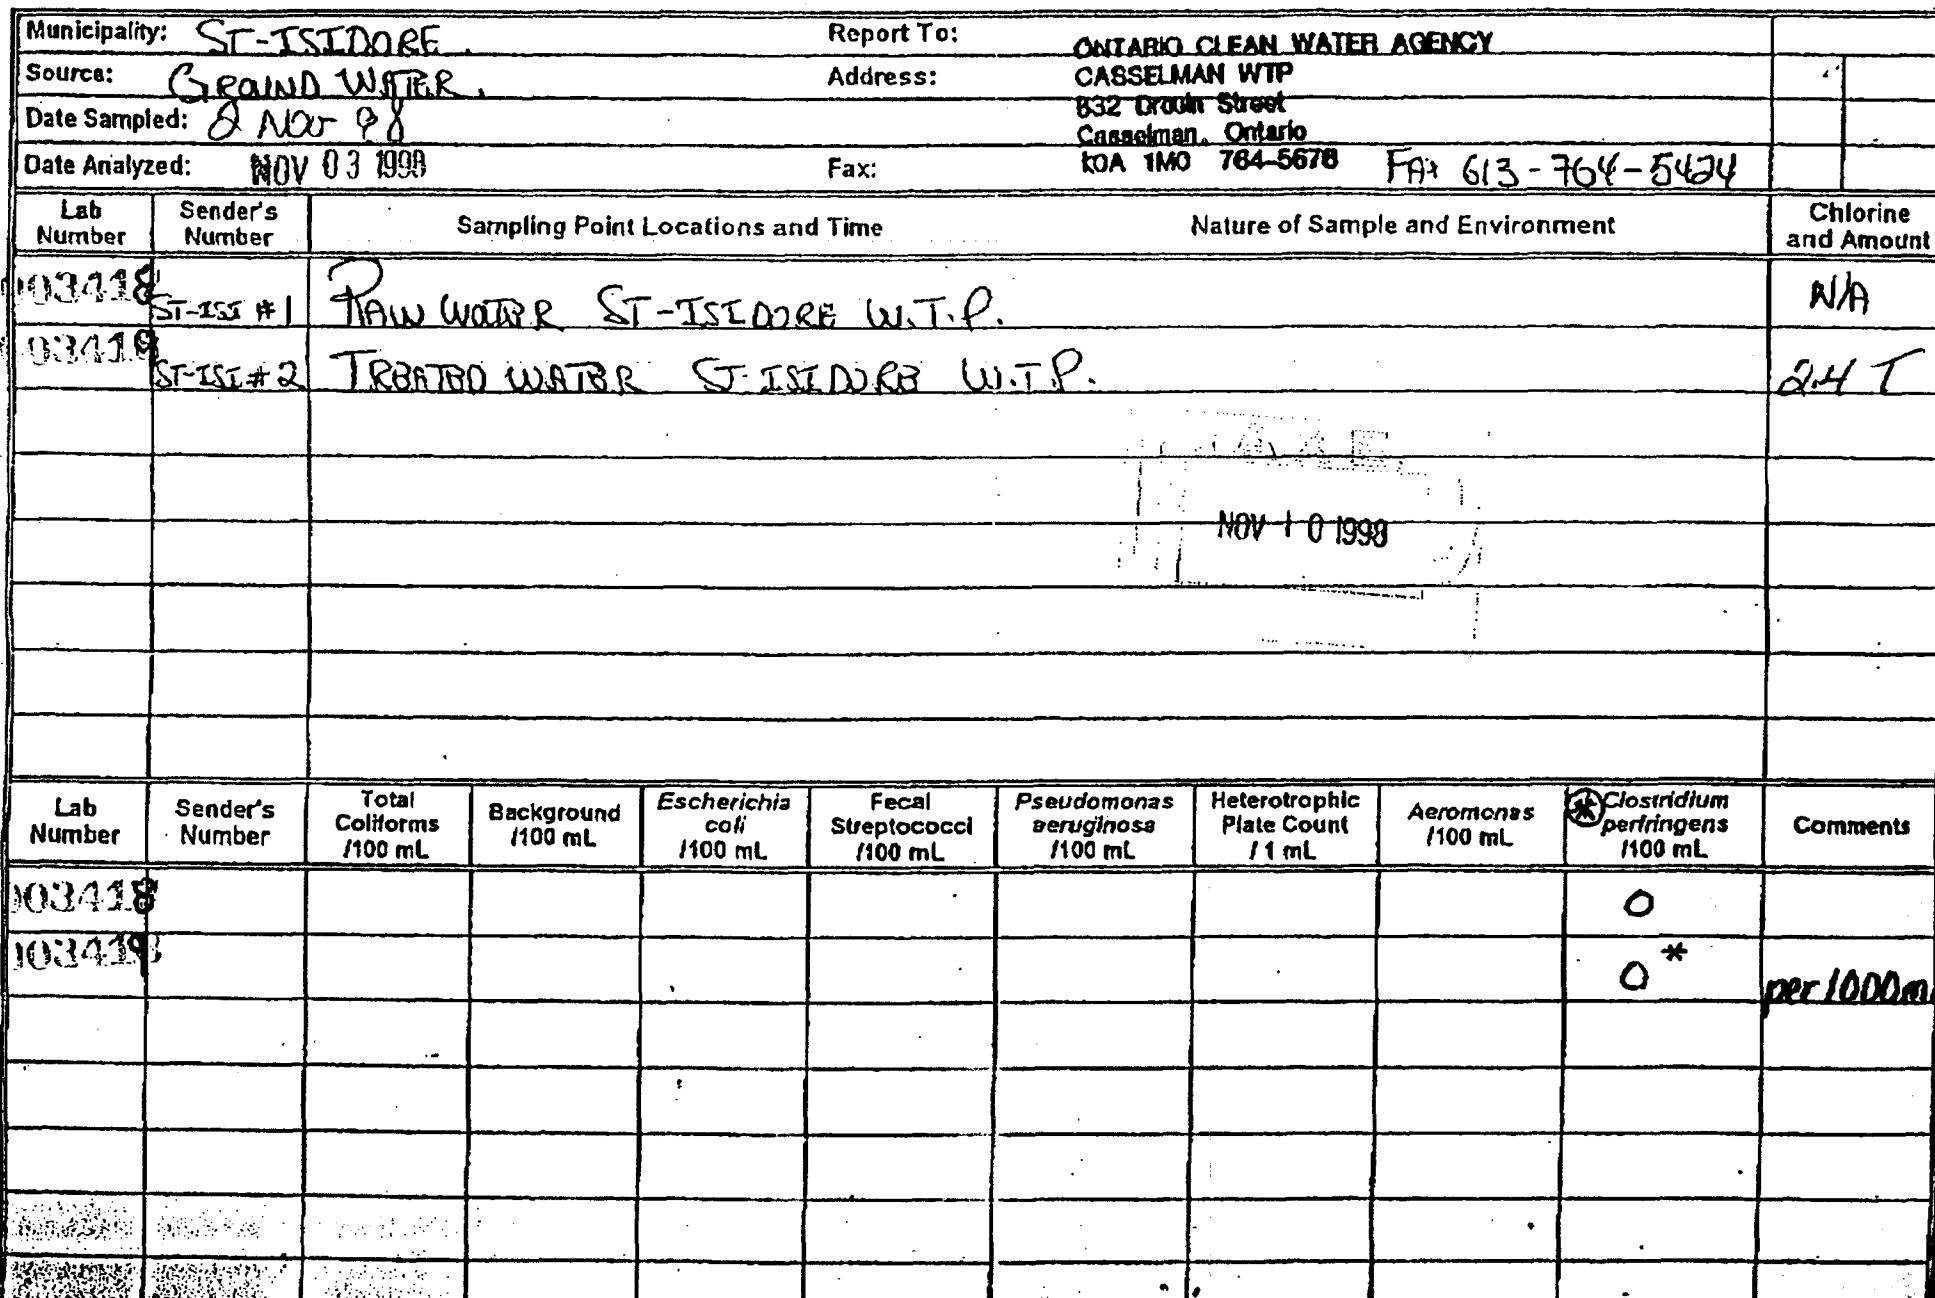 Municipality: ST-ISIDORE. Report To: ONTARIO CLEAN WATER AGENCY
Source: GROUND WATER. Address: CASSELMAN WTP
832 Street
Date Sampled: 2 Nov 98 Casselman, Ontario
Date Analyzed: NOV 03 1998 Fax: K0A 1M0 764-5678 FAX 613-764-5424
Lab Number Sender's Number Sampling Point Locations and Time Nature of Sample and Environment Chlorine and Amount
003418 ST-ISI #1 RAW WATER ST-ISIDORE W.T.P. N/A
03419 ST-ISI #2 TREATED WATER ST-ISIDORE W.T.P. 2.4 T
NOV 10 1998
Lab Number Sender's Number Total Coliforms /100 mL Background /100 mL Escherichia coli /100 mL Fecal Streptococci /100 mL Pseudomonas aeruginosa /100 mL Heterotrophic Plate Count / 1 mL Aeromonas /100 mL * Clostridium perfringens /100 mL Comments
003418 0
003419 0 * per 1000m